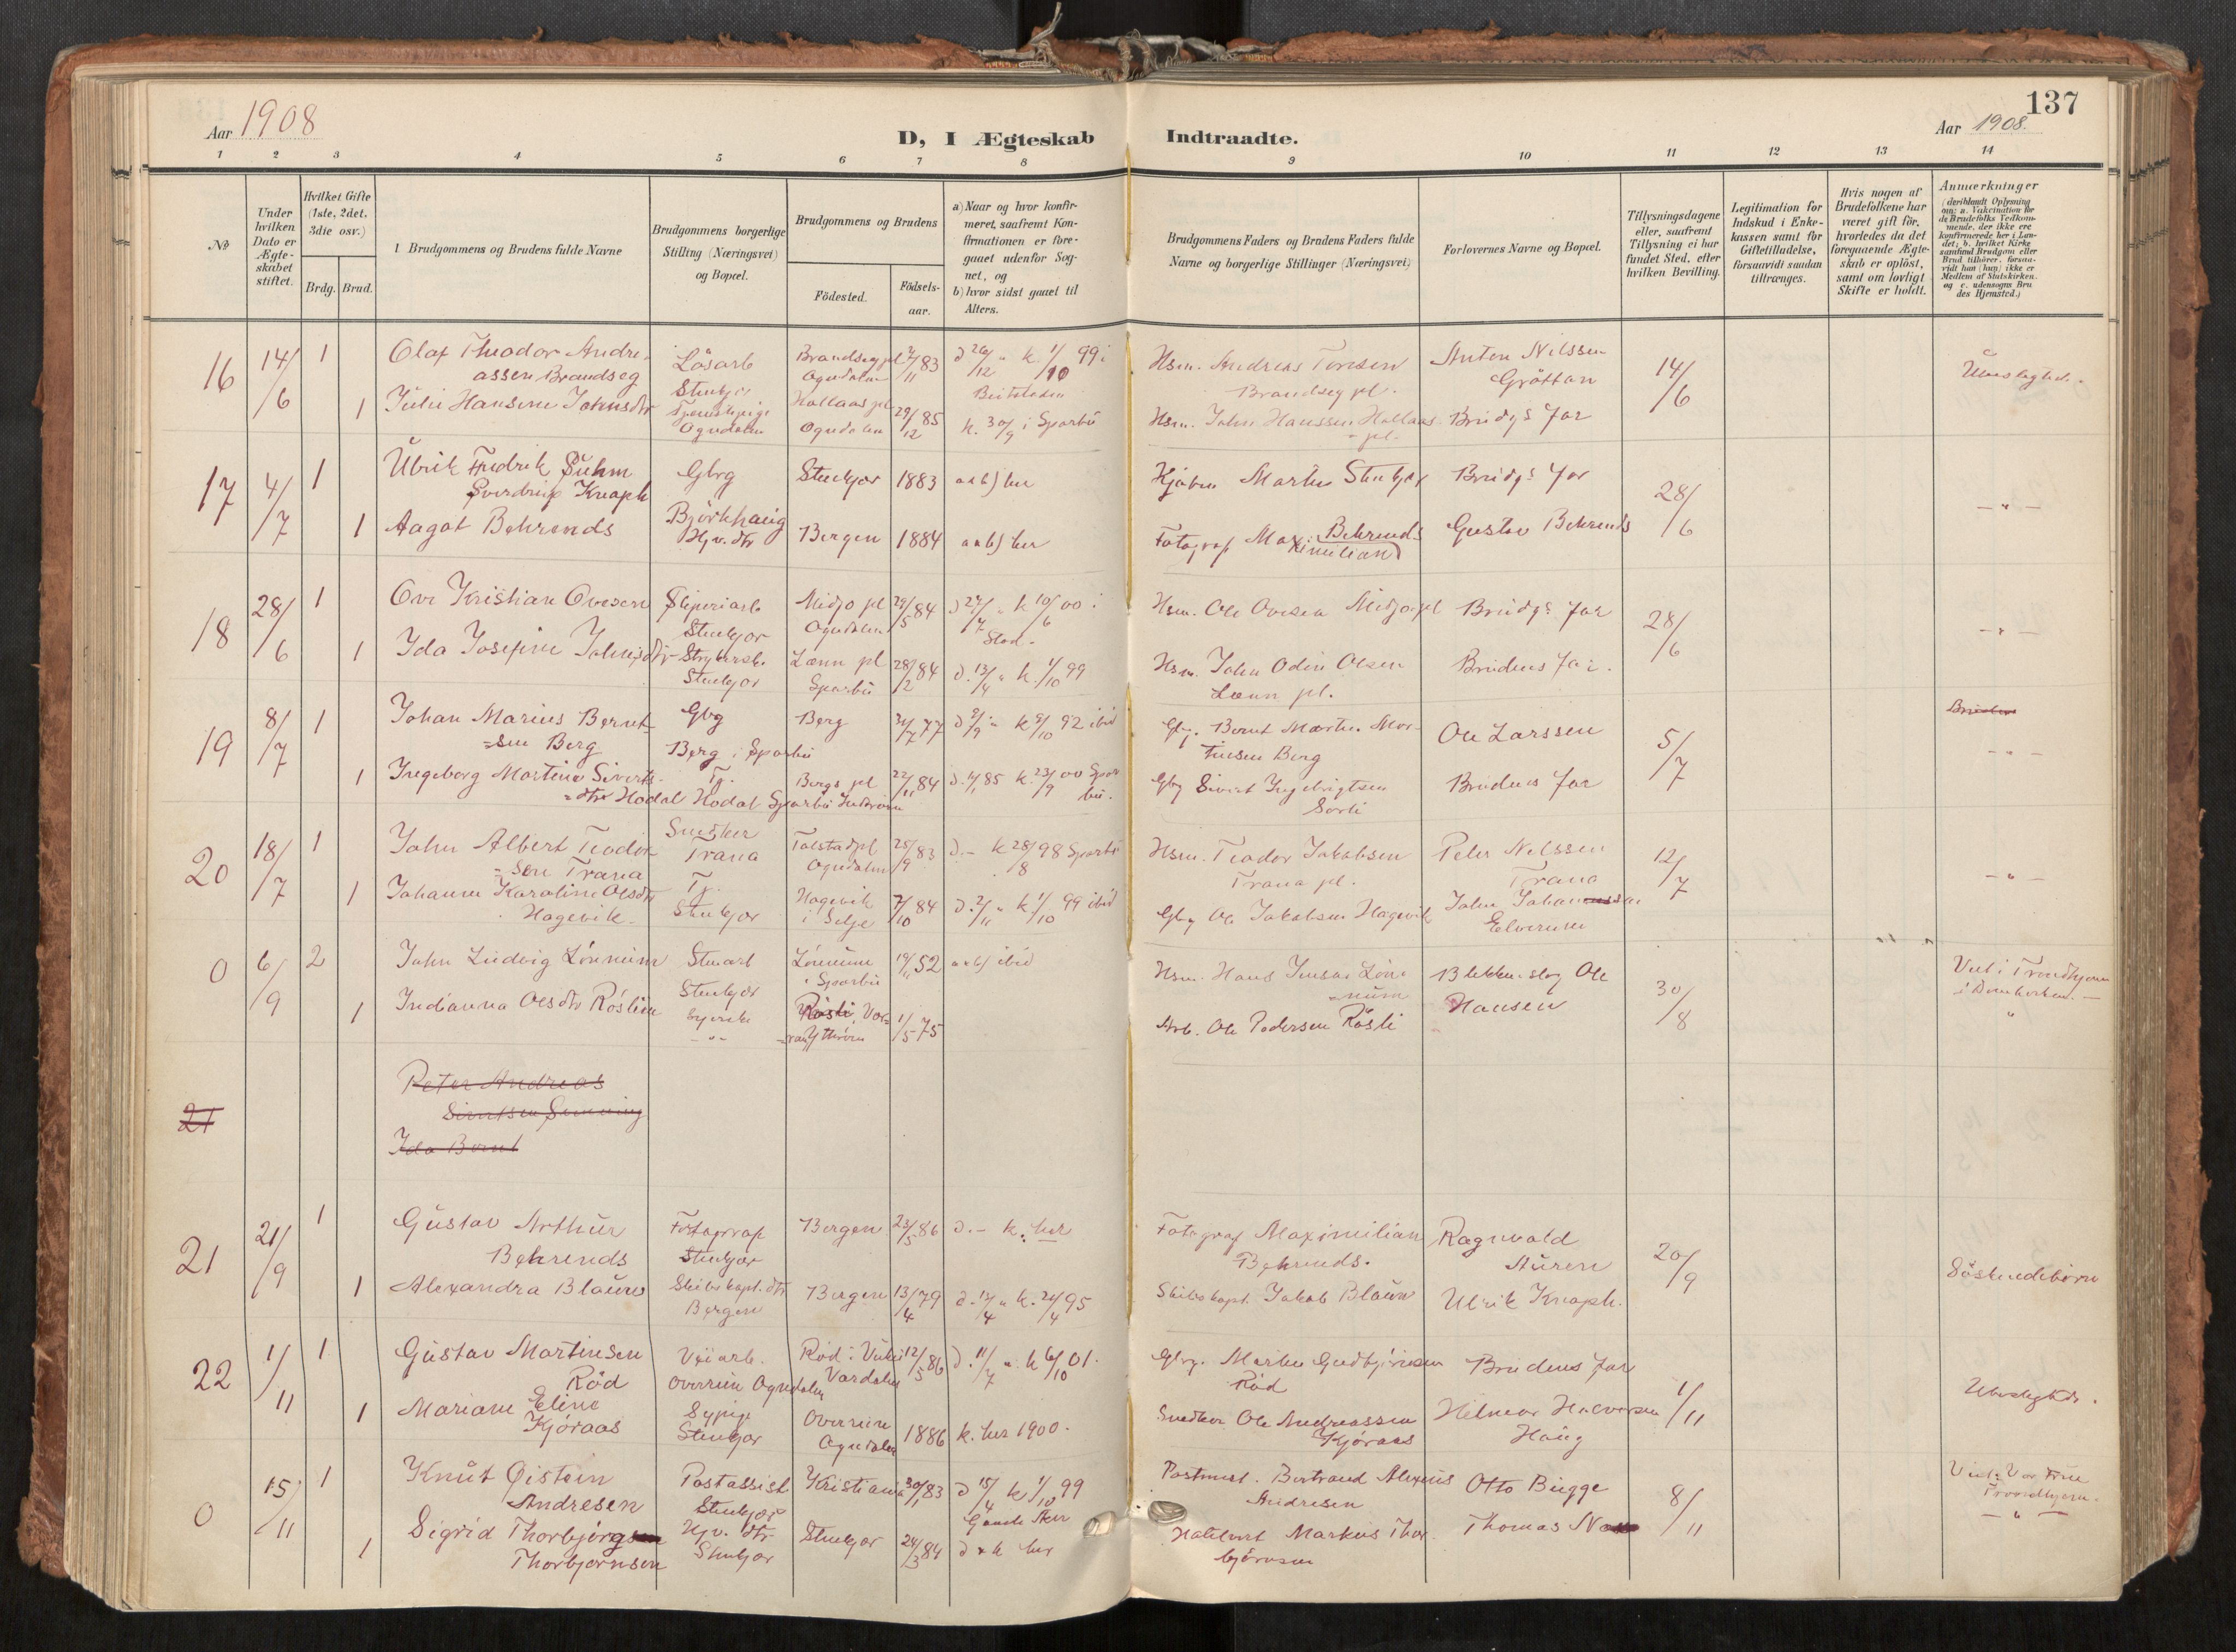 Aar 1908
D, I Ægteskab Indtraadte.
137
Aar 1908.
1 2 3 4 5 6 7 8 9 10 11 12 13 14
No
Under hvilken Dato er Ægte-skabet stiftet.
Hvilket Gifte (1ste, 2det, 3die osv.)
Brdg. Brud.
Brudgommens og Brudens fulde Navne
Brudgommens borgerlige Stilling (Næringsvei) og Bopæl.
Brudgommens og Brudens
Födested.
Födsels-aar.
a) Naar og hvor konfir-meret, saafremt Kon-firmationen er fore-gaaet udenfor Sog-net, og
b) hvor sidst gaaet til Alters.
Brudgommens Faders og Brudens Faders fulde Navne og borgerlige Stillinger (Næringsvei)
Forlovernes Navne og Bopæl.
Tillysningsdagene eller, saafremt Tillysning ei har fundet Sted, efter hvilken Bevilling.
Legitimation for Indskud i Enke-kassen samt for Giftetilladelse, forsaavidt saadan tiltrænges.
Hvis nogen af Brudefolkene har været gift för, hvorledes da det foregaaende Ægte-skab er oplöst, samt om lovligt Skifte er holdt.
Anmærkninger (deriblandt Oplysning om: a. Vakcination for de Brudefolks Vedkom-mende, der ikke ere konfirmerede her i Lan-det; b. hvilket Kirke-samfund Brudgom eller Brud tilhörer, forsaa-vidt han (hun) ikke er Medlem af Statskirken. og c. udensogns Bru-des Hjemsted.)
16 14/6 1 Olaf Theodor Andre-
assen Brandseg
Lösarb
Stenkjer
Brandseg pl
Ogndalen
2/11 83
d 26/12 k 1/10 99 i
Beitstaden
Hsm. Andreas Toresen
Brandseg pl.
Anton Nilssen
Gröttan
14/6
Ubeslegtede.
1 Julie Hansine Johnsdtr
Tjenestepige
Ogndalen
Hallaas pl
Ogndalen
29/12 85
k. 30/9 i Sparbu
Hsm. John Hanssen Hallaas
pl.
Brudgs Far
17 4/7 1 Ulrik Fredrik Suhm
Sverdrup Knaph
Gbrg
Björkhaug
Stenkjær 1883 a & b) her
Martin Stenkjær
Brudgs Far
28/6
- " -
1 Aagot Behrends
Bergen 1884 a & b) her
Fotograf Maximilian Behrends
Gustav Behrends
18 28/6 1 Ove Kristian Ovesen
Sliperiarb
Stenkjær
Midjo pl
Ogndalen
29/5 84
k 10/6 00 i
Stod.
Hsm. Ole Ovesen Midjo pl
Brudgs Far
28/6
- " -
1 Ida Josefine Johnsdtr
Stenkjær
Lænn pl
Sparbu
28/2 84
d. 13/4 " k. 1/10 99
Hsm. John Odin Olsen
Lænn pl.
Brudens Far.
19 8/7 1 Johan Marius Bernt-
=sen Berg
Gbg
Berg i Sparbu
Berg
d 9/9 " k 9/10 92 ibid
Gbg. Bernt Martin Mor-
tinsen Berg
Ole Larssen
5/7
- " -
1 Ingeborg Martine Siverts-
=dtr Hodal Hodal Sparbu
Tj.
Bergs pl
22/11 84
k. 23/9 00 Spar
bu.
Gbg Sivert Ingebrigtsen
Sorli
Brudens Far
20 18/7 1 John Albert Teodor-
=sen Trana
Snedker
Trana
Tolstadpl
Ogndalen
25/9 83
d. - k 28/8 98 Sparbu
Hsm. Teodor Jakobsen
Trana pl.
Peter Nelssen
Trana
12/7
- " -
1 Johanne Karoline Olsdtr
Hagevik.
Tj.
Stenkjær
Hagevik
i Selje
7/10 84
d. 2/11 " k. 1/10 99 ibid
Gbg Ole Jakobsen Hagevik
John Johannessen
Elverum
0 6/9 2 John Ludvig Lönnum
Stenarb
Stenkjær
Lönnum
i Sparbu
52
a & b) ibid
Hsm. Hans Jensen Lön-
=num
Blikkenslag Ole
Hansen
30/8
Viet i Trondhjem
i Domkirken. -
1 Indianna Olsdtr Röslien
Syerske
- " -
Ytterön
1/5 75
Arb. Ole Pedersen Rösli
"
21
Peter Andreas
Ida Bernt
21 21/9 1 Gustav Arthur
Behrends
Fotograf
Stenkjær
Bergen 23/5 86 d. - k. her
Fotograf Maximilian
Behrends.
Ragnvald
Auren
20/9
Söskendebörn
1 Alexandra Blauw
Skibskapt. dtr
Bergen
Bergen 13/4 79
k. 21/4 95
Skibskapt. Jakob Blauw
Ulrik Knaph.
22 1/11 1 Gustav Martinsen
Röd
Veiarb.
Overrein Ogndalen
Röd i Vuku
Værdalen
12/5 86
d. 11/7 " k 6/10 01.
Gbrg. Martin Gudbjörnsen
Röd
Brudens Far
1/11
Ubeslegtede.
1 Mariane Eline
Kjöraas
Sypige
Stenkjær
Overrein
Ogndalen
1886 k. her 1900.
Snedker Ole Andreassen
Kjöraas
Hilmar Halvorsen
Haug
0 15/11 1 Knut Øistein
Andresen
Postassist
Stenkjær
Kristiania
30/1 83
d 15/4 k 1/10 99
Gamle Aker
Postmest. Bertrand Alexius
Andresen
Otto Bugge
8/11
Viet i Vor Frue
Trondhjem.
1 Sigrid Thorbjörgsen
Thorbjørnsen
Hjv. dtr
Stenkjær
Stenkjær
24/3 84
d & k her
Markus Thor-
björnsen
Thomas
- " -